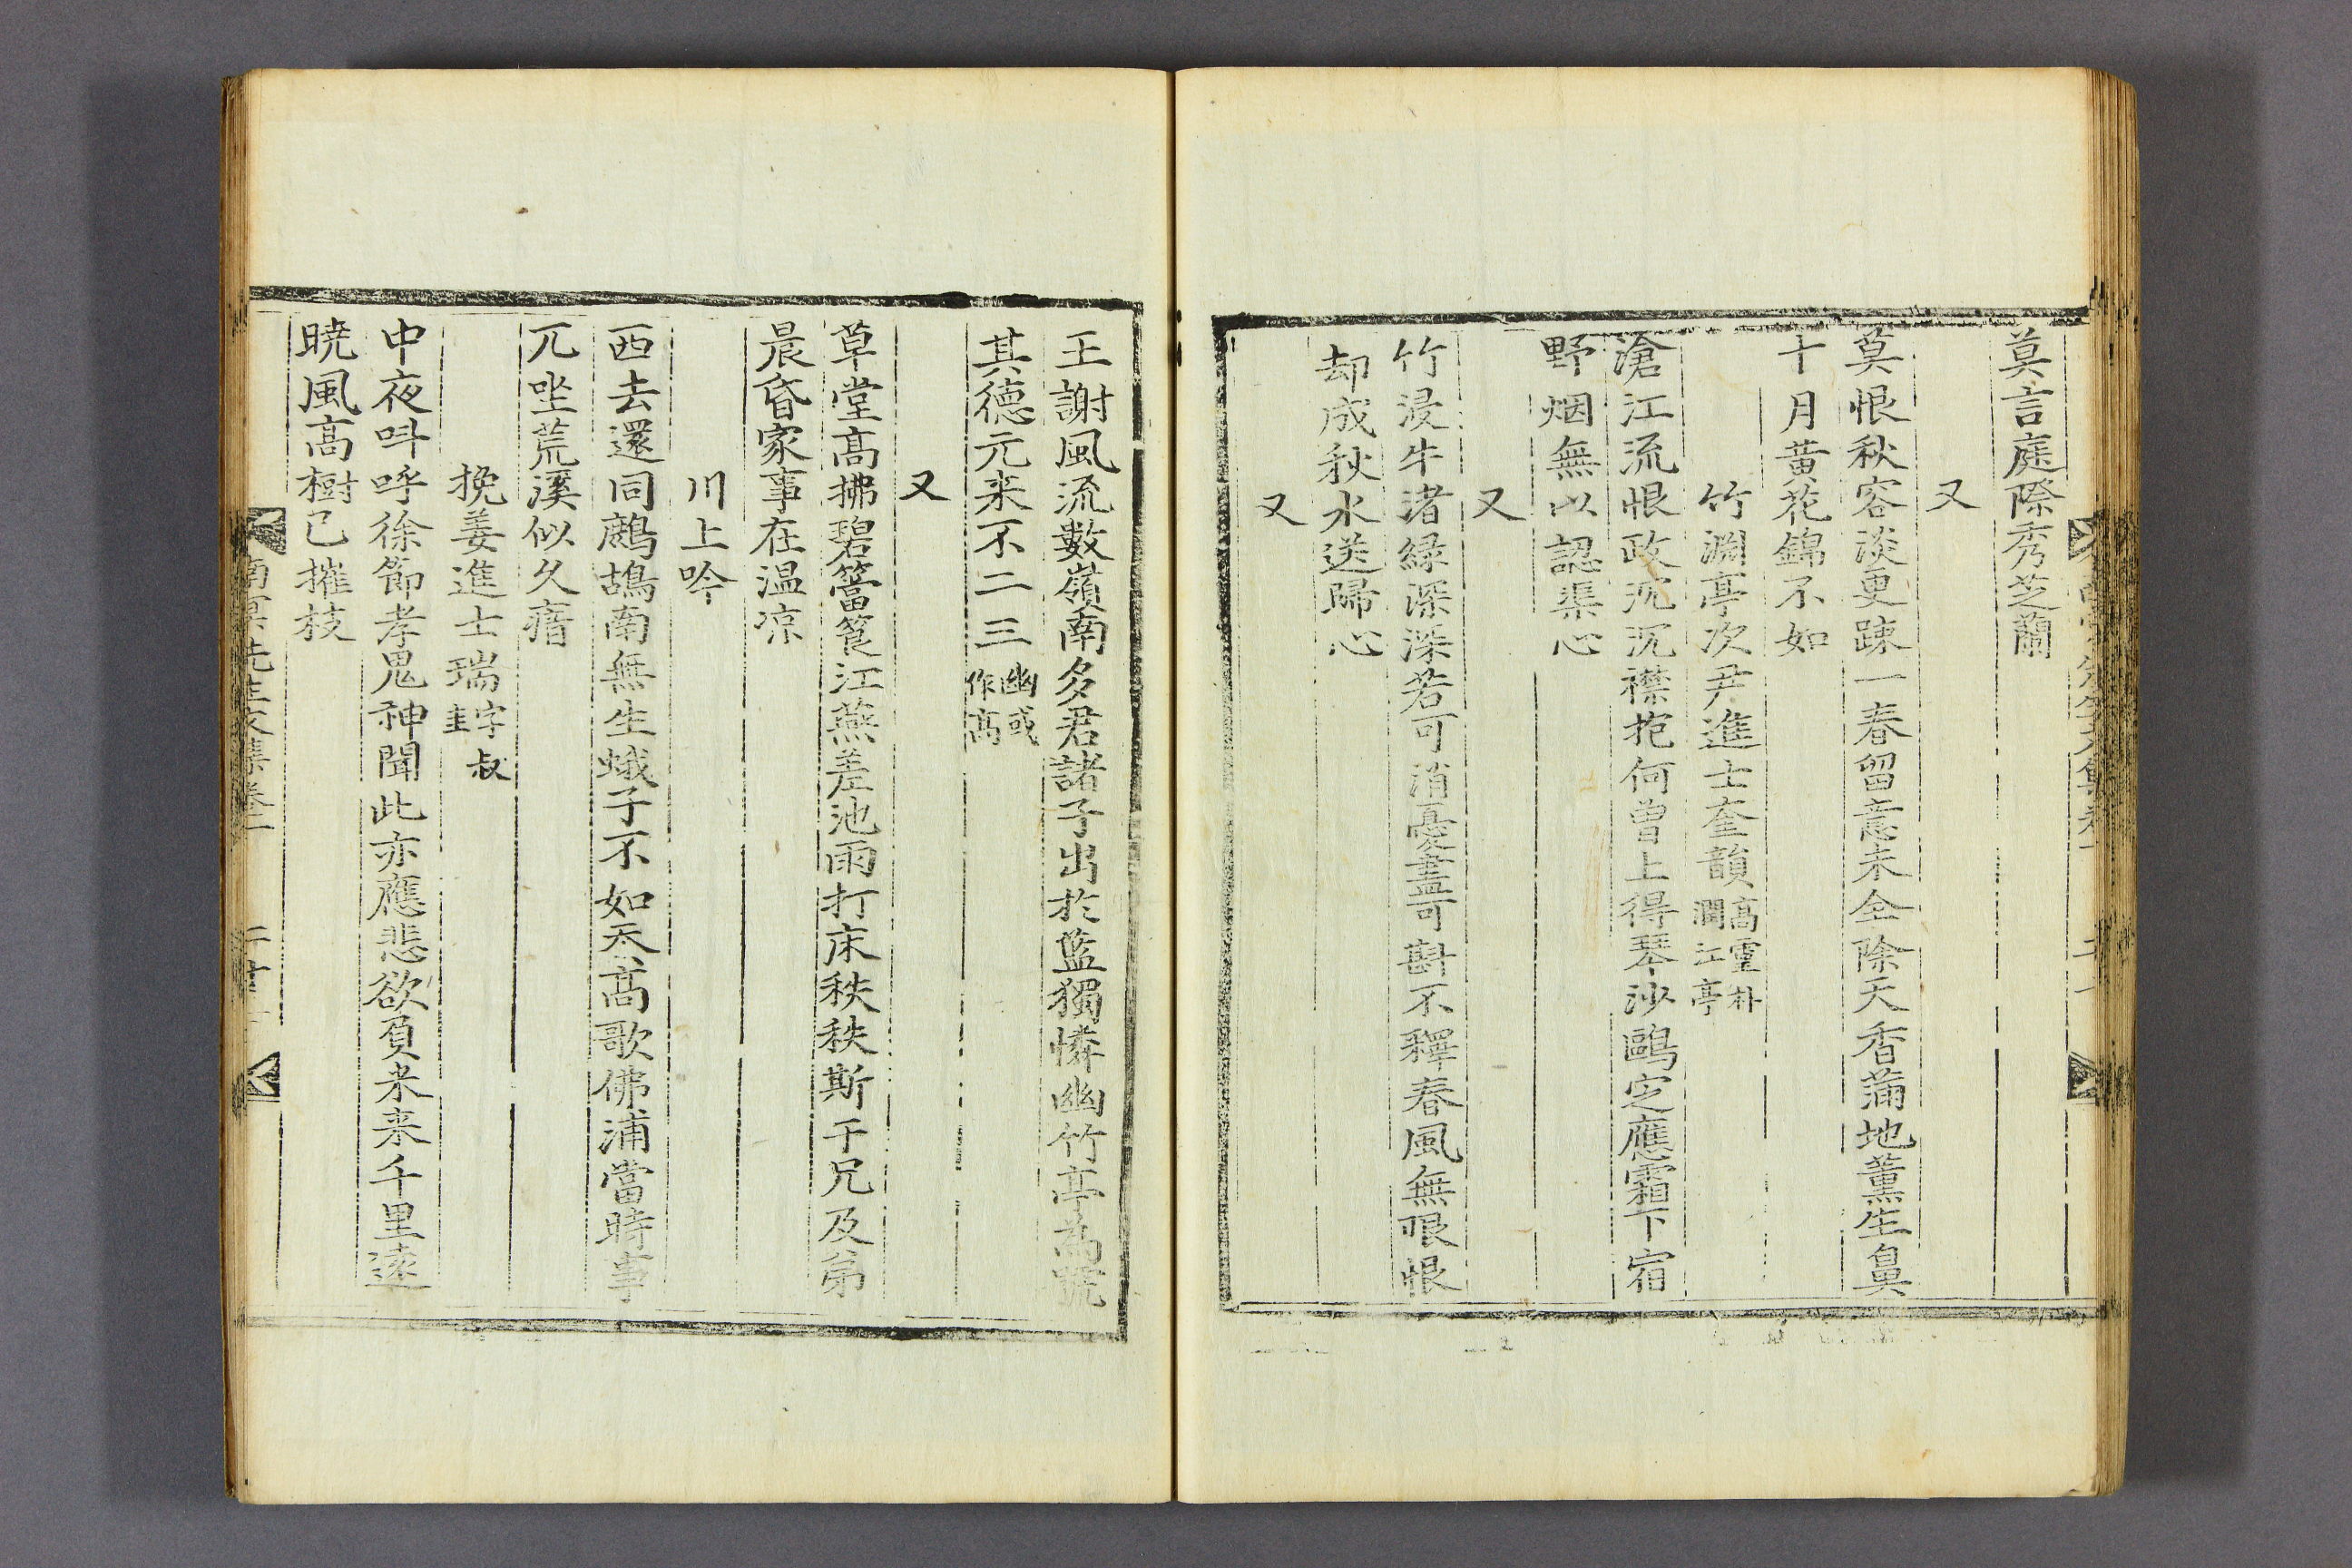 莫言庭際秀芝蘭
又
莫恨秋容淡更踈一春留意未全除天香蒲地薰生鼻
十月黃花錦不如
竹淵亭次尹進士奎韻高靈朴
潤江亭
滄江流恨政沉沉襟抱何曾上得琴沙鷗定應霜下宿
野烟無以認渠心
又
竹浸牛渚綠深深若可消憂盡可斟不釋春風無限恨
却成秋水送歸心
又
王謝風流數嶺南多君諸子出於藍獨憐幽竹亭爲號
其德元来不二三幽或
作高
又
草堂高拂碧簹篬江燕差池雨打床秩秩斯干兄及弟
晨昏家事在温凉
川上吟
西去還同鷓鴣南無生蛾子不如蚕高歌佛浦當時事
兀坐荒溪似久瘖
挽姜進士瑞字叔
圭
中夜呌呼徐節孝鬼神聞此亦應悲欲負未来千里遠
曉風高樹已摧枝
南冥先生文集卷一